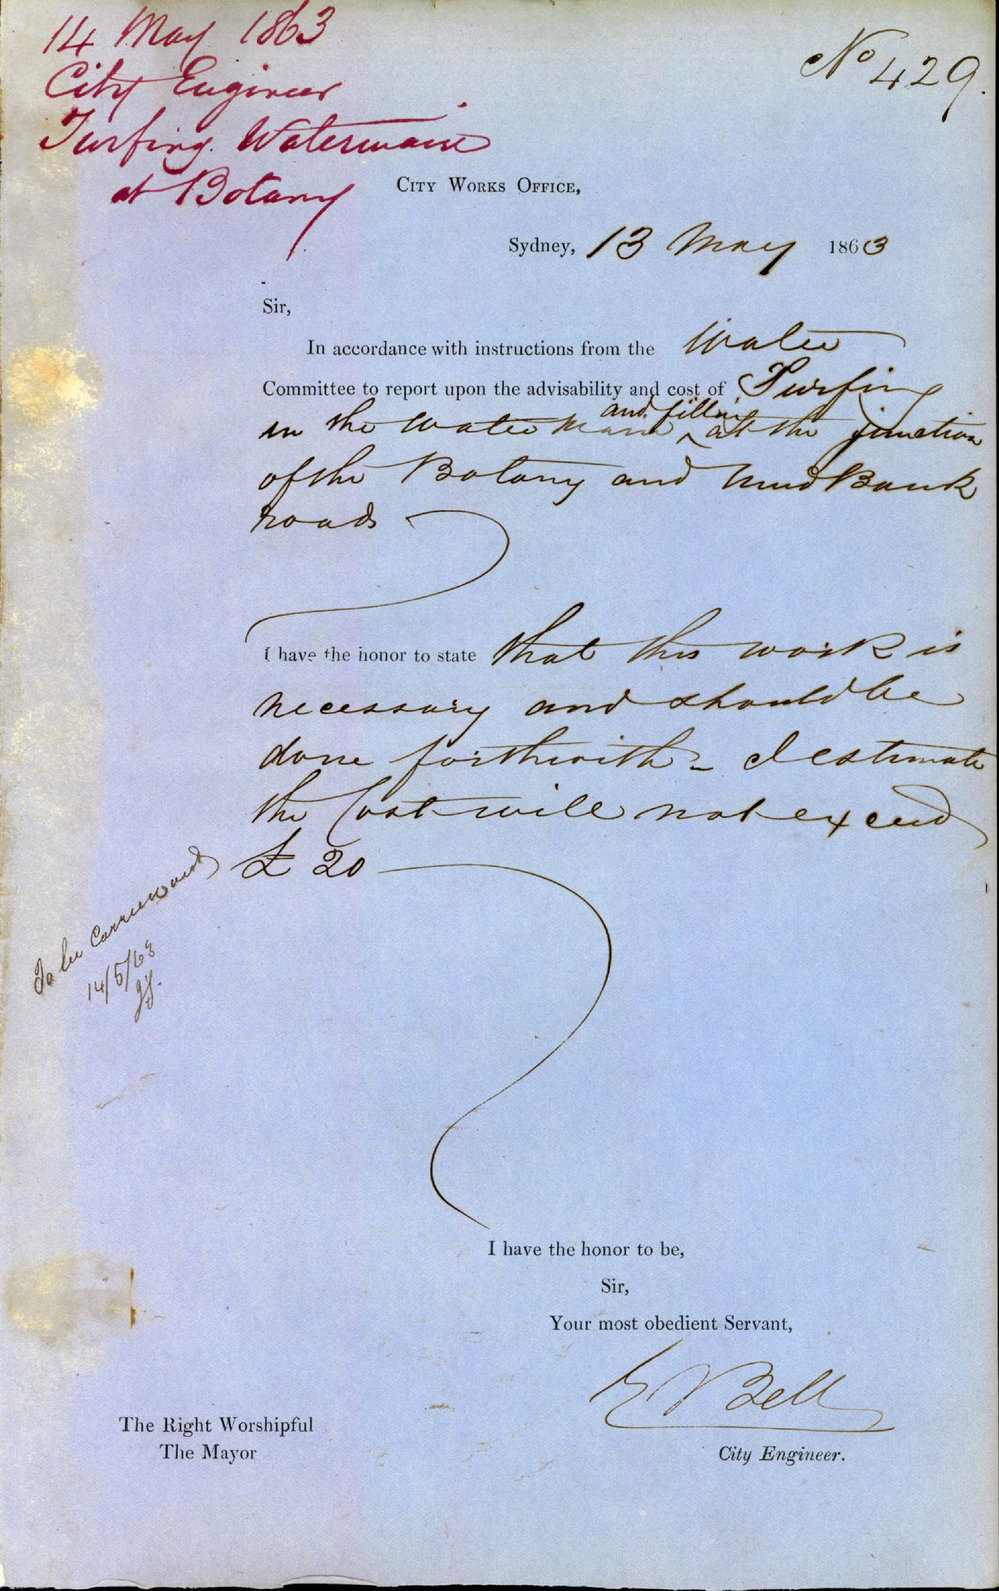 14 May 1863
City Engineer
Turfing Watermain
at Botany
No 429.
City Works Office,
Sydney, 13 May 1863
Sir,
In accordance with instructions from the Water
Committee to report upon the advisability and cost of Turfing
and filling
in the water main at the junction
of the Botany and Mud Bank
roads
I have the honor to state that this work is
necessary and should be
done forthwith - I estimate
the Cost will not exceed
£ 20
To be
14/5/63
I have the honor to be,
Sir,
Your most obedient Servant,
E Bell
City Engineer.
The Right Worshipful
The Mayor